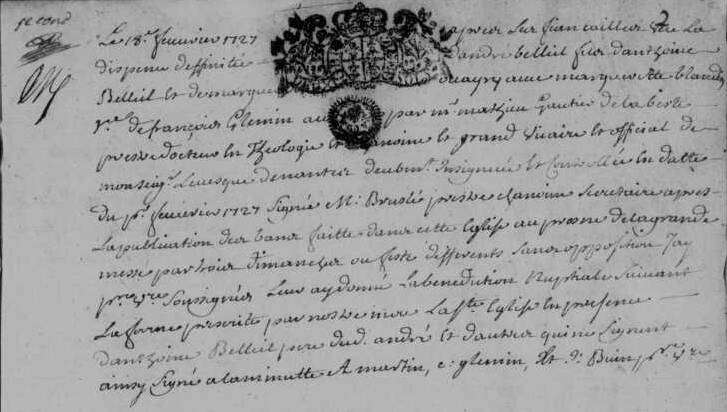 second
Le 18e feuvrier 1727 apres les fiancailles
dispense daffinité andré belleil fils danthoine
Belleil et de marque marguerite blanch
de françois Glemin par mre mathieu Gautier de la
prestre docteur en Theologie et chanoine le grand vicaire et official de
monseigr Levesque de nantes deubmt Insignuée et Controllée en datte
du pr feuvrier 1727 Signée M: Bruslé prestre chanoine Secretaire apres
La publication des bans faitte dans cette Eglise au prosne de la grande
messe par trois dimanches ou feste differents sans opposition Jay
ptre vre Soussigné Leur ay donné La benediction Nuptiale Suivant
La forme prescrite par nostre mere La Ste Eglise En presence
danthoine Belleil pere dud. andré et dautres qui ne Signent
ainsy Signé a la minutte A martin, c: glemin, et